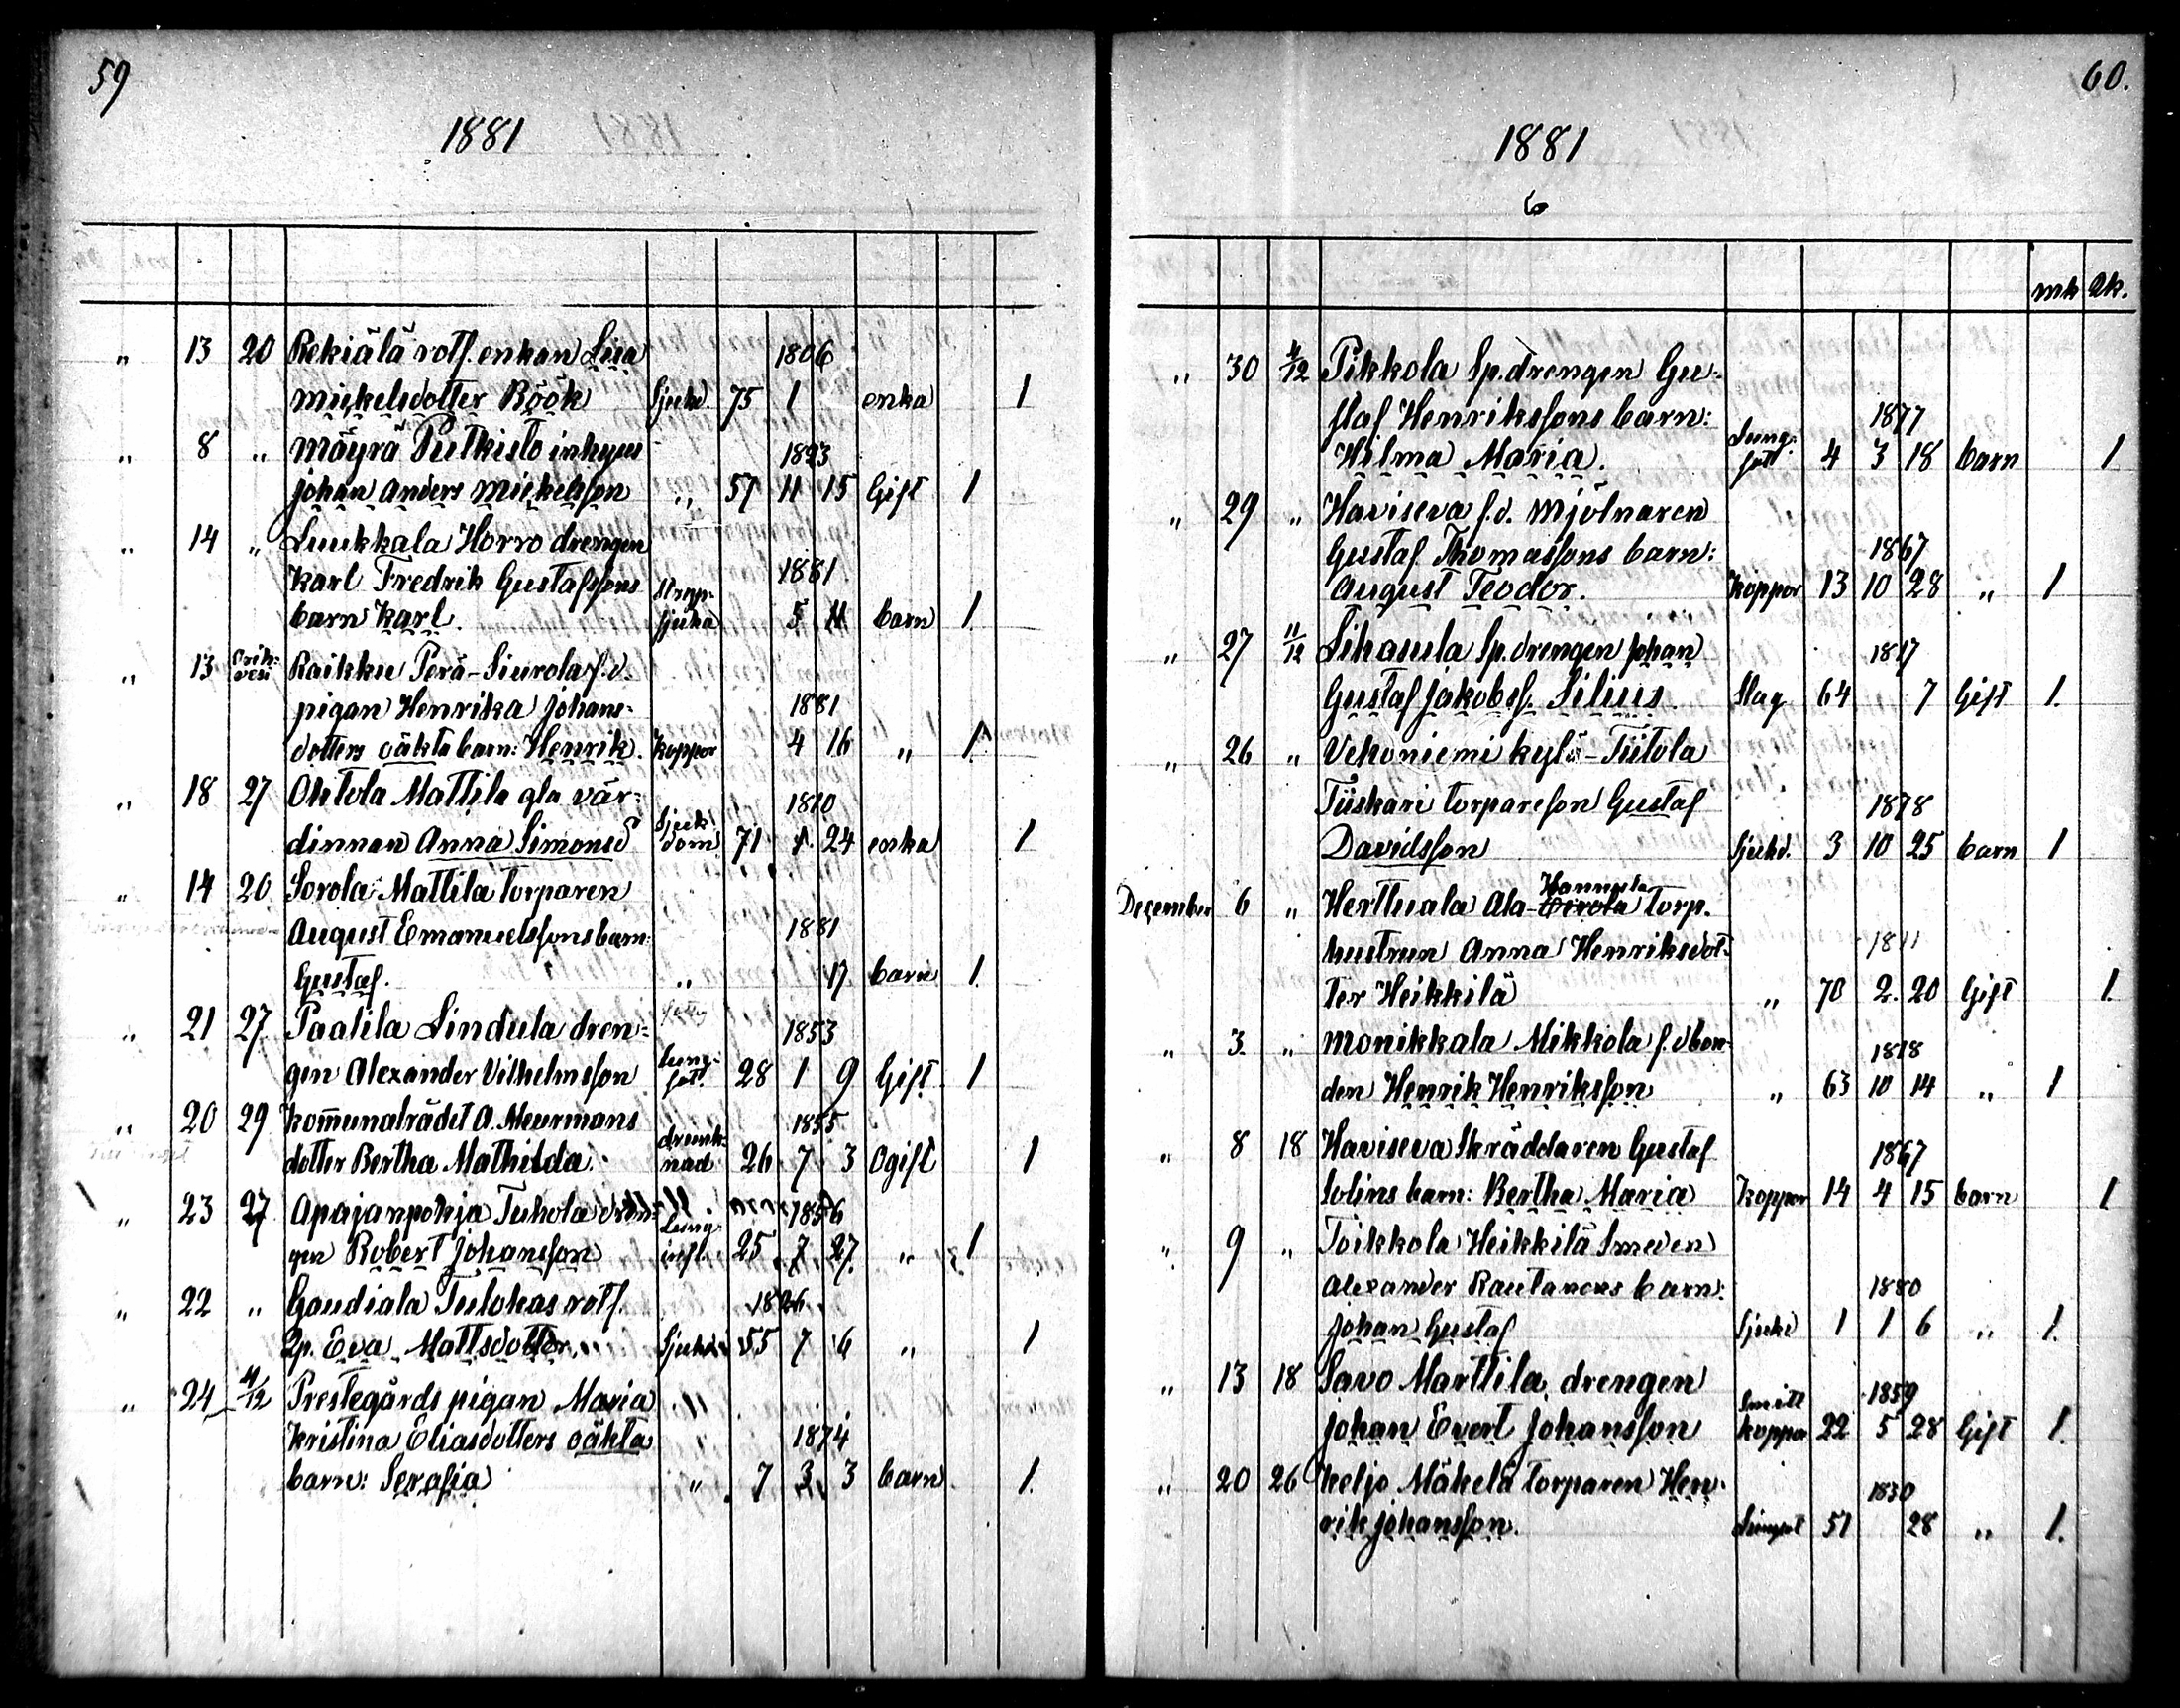 59
1881
„ 13 20 Rekiälä rotf. enkan Lisa 1806
Mickelsdotter Röök Sjukd. 75 1 enka 1
„ 8 „ Mäyrä Putkisto inhyses 1823
Johan Anders Mickelsson „ 57 11 15 Gift 1
„ 14 „ Luukkala Horro drengen
Karl Fredrik Gustafssons 1881
barn Karl. Stryp-sjuka 5 11 barn 1.
„ 13 Orih-vesi Raikku Perä-Siurola f.d.
pigan Henrika Johans- 1881
dotters oäkta barn: Henrik. Koppor 4 16 „ 1
„ 18 27 Ohtola Mattila gla vär- 1810
dinnan Anna Simonsd Sjuk-dom 71 1 24 enka 1
„ 14 20 Sorola Mattila torparen
August Emanuelssons barn: 1881
Gustaf. „ 17 barn 1.
„ 21 27 Paalila Lindula dren- 1853
gen Alexander Vilhelmsson Lung-sot. 28 1 9 Gift 1
„ 20 29 Kommunalrådet A. Meurmans 1855
dotter Bertha Mathilda. drunk-nad 26 7 3 Ogift 1
„ 23 27 Apajanpohja Tuhola dren- 1856
gen Robert Johansson Lung infl. 25 7 27. „ 1
„ 22 „ Gaudiala Tulokas rotf. 1826
Qp. Eva Mattsdotter. Sjukd. 55 7 6 „ 1
„ 24 4/12 Prestegårds pigan Maria
Kristina Eliasdotters oäkta 1874
barn: Serafia „ 7 3 3 barn 1.
60.
1881
6
mk Qk.
„ 30 4/12 Pikkola Sp.drengen Gu-
staf Henrikssons barn: 1877
Hilma Maria. Lung-sot 4 3 18 barn 1
„ 29 „ Haviseva f.d. Mjölnaren
Gustaf Thomassons barn: 1867
August Teodor. Koppor 13 10 28 „ 1
„ 27 11/12 Lihasula Sp.drengen Johan 1817
Gustaf Jakobss. Silius. Slag 64 7 Gift 1.
„ 26 „ Vehoniemi kylä-Tiitola
Tiiskari torpareson Gustaf 1878
Davidsson Sjukd. 3 10 25 barn 1
Hannula
December 6 „ Herttuala Ala- torp.
hustrun Anna Henriksdot- 1811
ter Heikkilä „ 70 2. 20 Gift 1.
„ 3. „ Monikkala Mikkola f.d bon- 1818
den Henrik Henriksson „ 63 10 14 „ 1
„ 8 18 Haviseva Skräddaren Gustaf 1867
Solins barn: Bertha Maria Koppor 14 4 15 barn 1
„ 9 „ Toikkola Heikkilä Smeden
Alexander Rautanens barn: 1880
Johan Gustaf Sjukd 1 1 6 „ 1.
„ 13 18 Savo Marttila drengen 1859
Johan Evert Johansson Smitt koppor 22 5 28 Gift 1.
„ 20 26 Keljo Mäkelä torparen Hen- 1830
rik Johansson. Lungsot 51 28 „ 1.